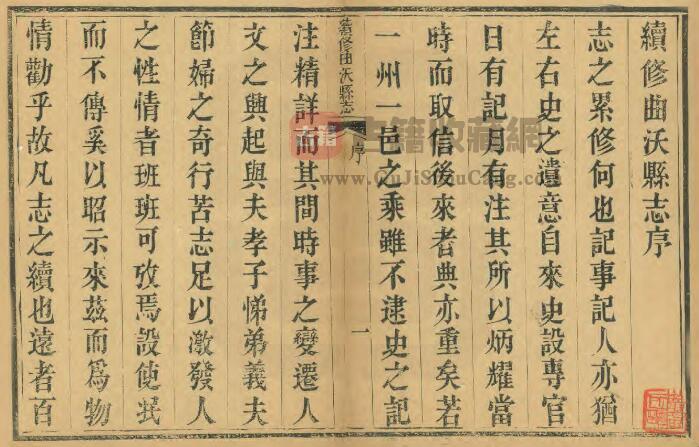 續修曲沃縣志序
志之累修何也記事記人亦猶
左右史之遺意自來史設專官
日有記月有注其所以炳耀當
時而取信後來者典亦重矣若
一州一邑之乘雖不逮史之記
續修曲沃縣志
序
一
注精詳而其間時事之變遷人
文之興起與夫孝子悌弟義夫
節婦之奇行苦志足以激發人
之性情者班班可攷焉設使氓
而不傳奚以昭示來茲而為物
情勸乎故凡志之續也遠者百
古籍收藏網
www.GuJiShouCang.com